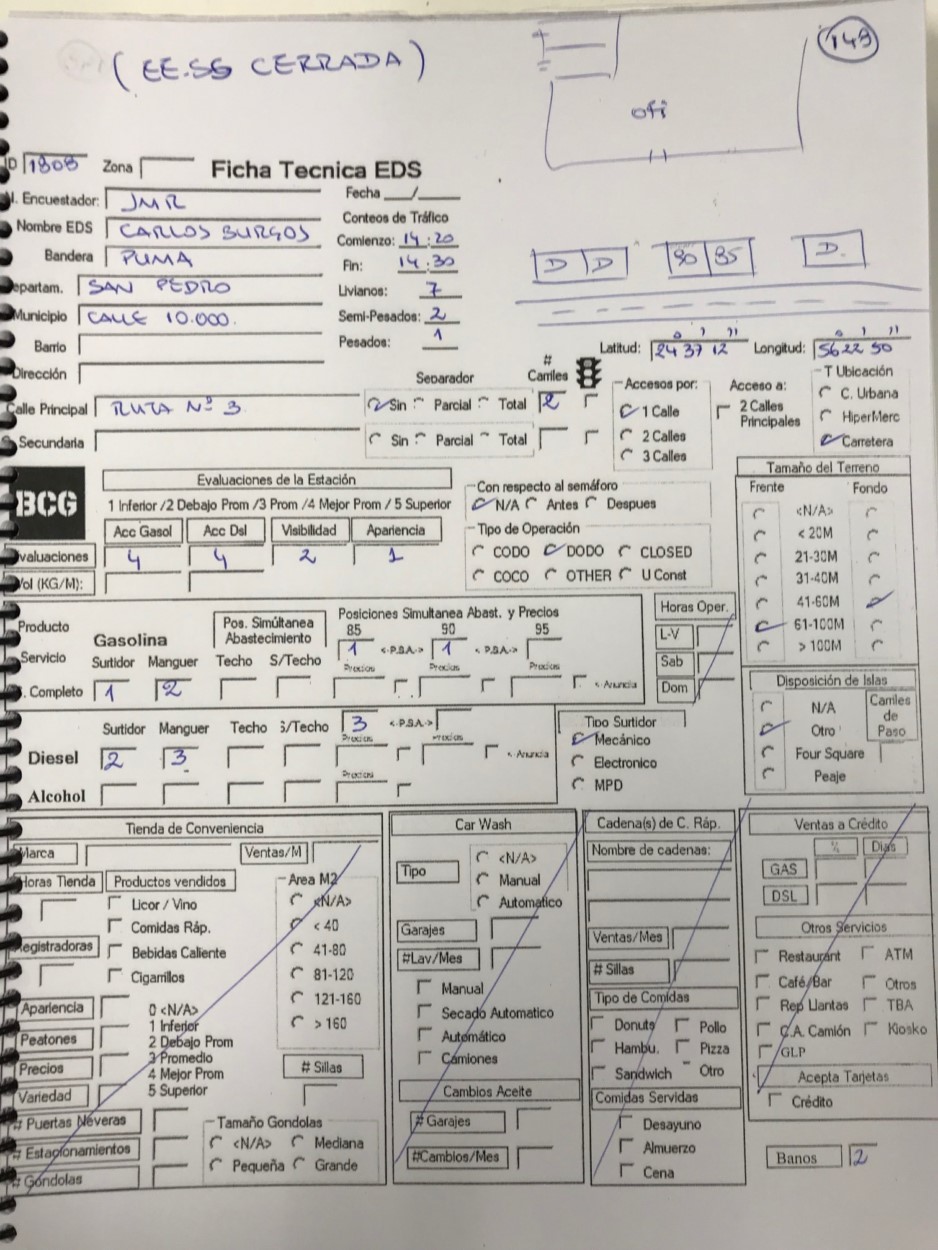 (EE.SS CERRADA)
149
ofi
ID 1808 Zona Ficha Tecnica EDS
N. Encuestador: JMR Fecha __/__
Nombre EDS CARLOS BURGOS Conteos de Tráfico
Bandera PUMA Comienzo: 14:20
Fin: 14:30
Departam. SAN PEDRO Livianos: 7
Municipio CALLE 10.000. Semi-Pesados: 2
Barrio Pesados: 1
D D 90 85 D.
Latitud: 24° 37' 12" Longitud: 56° 22' 50"
Dirección Separador # Carriles
Calle Principal RUTA Nº 3 Sin Parcial Total 2
Secundaria Sin Parcial Total
Accesos por: Acceso a: T Ubicación
1 Calle 2 Calles Principales C. Urbana
2 Calles HiperMerc
3 Calles Carretera
BCG
Evaluaciones de la Estación
1 Inferior /2 Debajo Prom /3 Prom /4 Mejor Prom / 5 Superior
Acc Gasol Acc Dsl Visibilidad Apariencia
Evaluaciones 4 4 2 1
Vol (KG/M):
Con respecto al semáforo
N/A Antes Despues
Tipo de Operación
CODO DODO CLOSED
COCO OTHER U Const
Tamaño del Terreno
Frente Fondo
<N/A>
< 20M
21-30M
31-40M
41-60M
61-100M
> 100M
Producto Gasolina Pos. Simúltanea Abastecimiento Posiciones Simultanea Abast. y Precios
85 90 95
Servicio Surtidor Manguer Techo S/Techo 1 <-P.S.A.-> 1 <-P.S.A.->
Precios Precios Precios
S. Completo 1 2 <- Anuncia
Horas Oper.
L-V
Sab
Dom
Surtidor Manguer Techo S/Techo 3 <-P.S.A.->
Precios Precios
Diesel 2 3 <- Anuncia
Precios
Alcohol
Tipo Surtidor
Mecánico
Electronico
MPD
Disposición de Islas
N/A Carriles de Paso
Otro
Four Square
Peaje
Tienda de Conveniencia
Marca Ventas/M
Horas Tienda Productos vendidos Area M2
Licor / Vino <N/A>
Comidas Ráp. < 40
Registradoras Bebidas Caliente 41-80
Cigarrillos 81-120
Apariencia 0 <N/A> 121-160
1 Inferior > 160
Peatones 2 Debajo Prom
Precios 3 Promedio
4 Mejor Prom # Sillas
Variedad 5 Superior
# Puertas Neveras Tamaño Gondolas
# Estacionamientos <N/A> Mediana
# Góndolas Pequeña Grande
Car Wash
Tipo <N/A>
Manual
Automatico
Garajes
#Lav/Mes
Manual
Secado Automatico
Automático
Camiones
Cambios Aceite
# Garajes
#Cambios/Mes
Cadena(s) de C. Ráp.
Nombre de cadenas:
Ventas/Mes
# Sillas
Tipo de Comidas
Donuts Pollo
Hambu. Pizza
Sandwich Otro
Comidas Servidas
Desayuno
Almuerzo
Cena
Ventas a Crédito
% Dias
GAS
DSL
Otros Servicios
Restaurant ATM
Café/Bar Otros
Rep Llantas TBA
C.A. Camión Kiosko
GLP
Acepta Tarjetas
Crédito
Banos 2